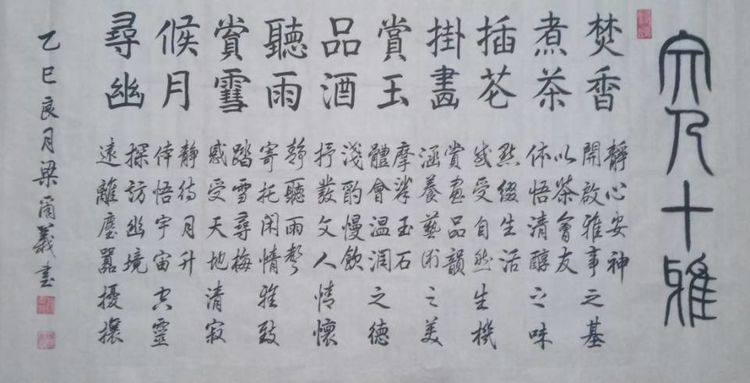 人十雅
焚香
靜心安神
開啟雅事之基
煮茶
以茶會友
体悟清醇之味
插芲
點綴生活
感受自然生機
掛畫
賞畫品韻
涵養藝術之美
賞玉
摩挲玉石
體會溫潤之德
品酒
淺酌慢飲
抒發文人情懷
聽雨
靜聽雨聲
寄托閑情雅致
賞雪
踏雪尋梅
感受天地清寂
候月
靜待月升
体悟宇宙空靈
尋幽
探訪幽境
遠離塵囂擾攘
乙巳良月梁義書